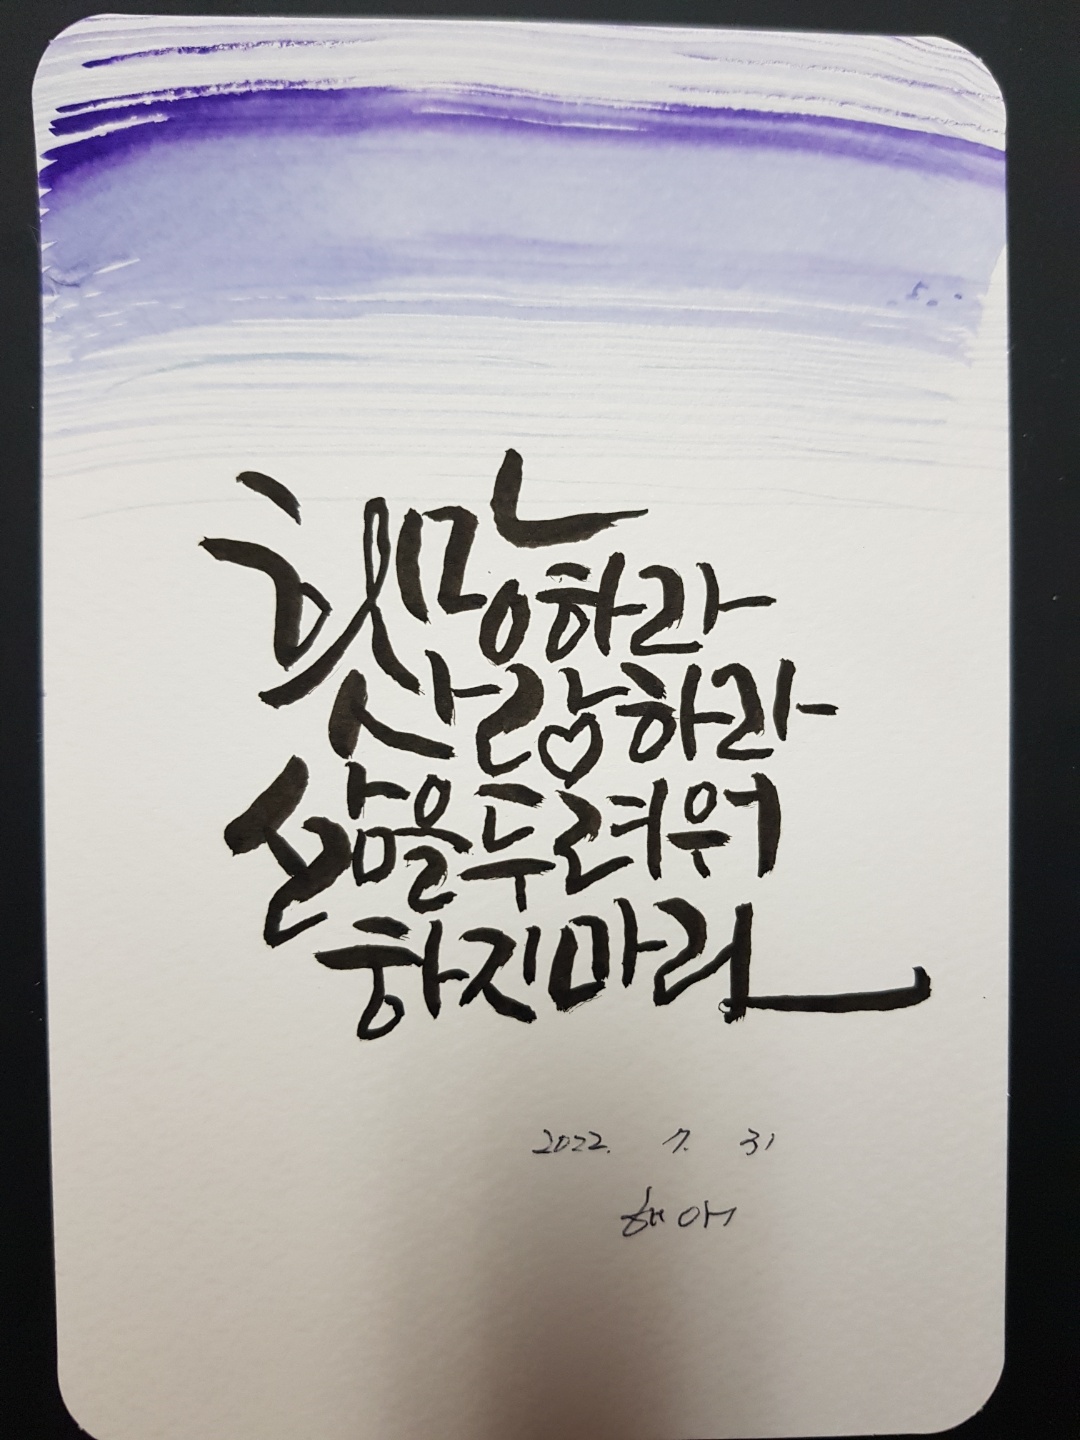 희망하라
사랑하라
삶을 두려워
하지마라
2022. 7. 31